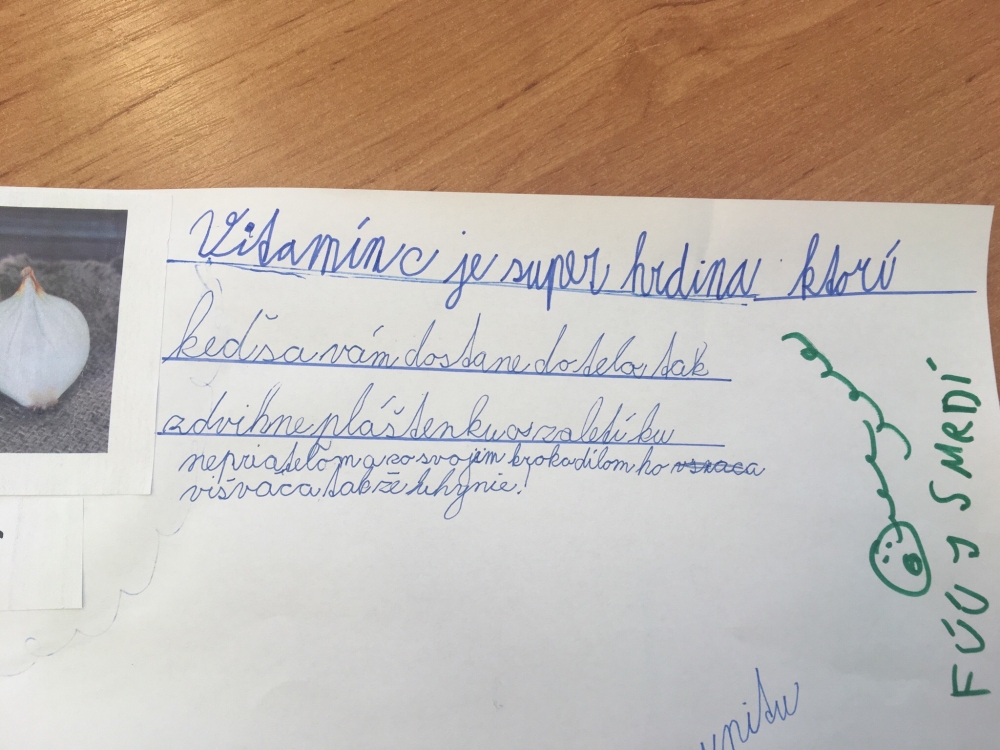 Vitamín c je super hrdina ktorí
keď sa vám dostane do tela tak
zdvihne pláštenku a zaletí ku
nepriateľom a zo svojim krokodílom ho vsraca
višváca tak že zhynie!
FÚÚJ SMRDÍ
unitu